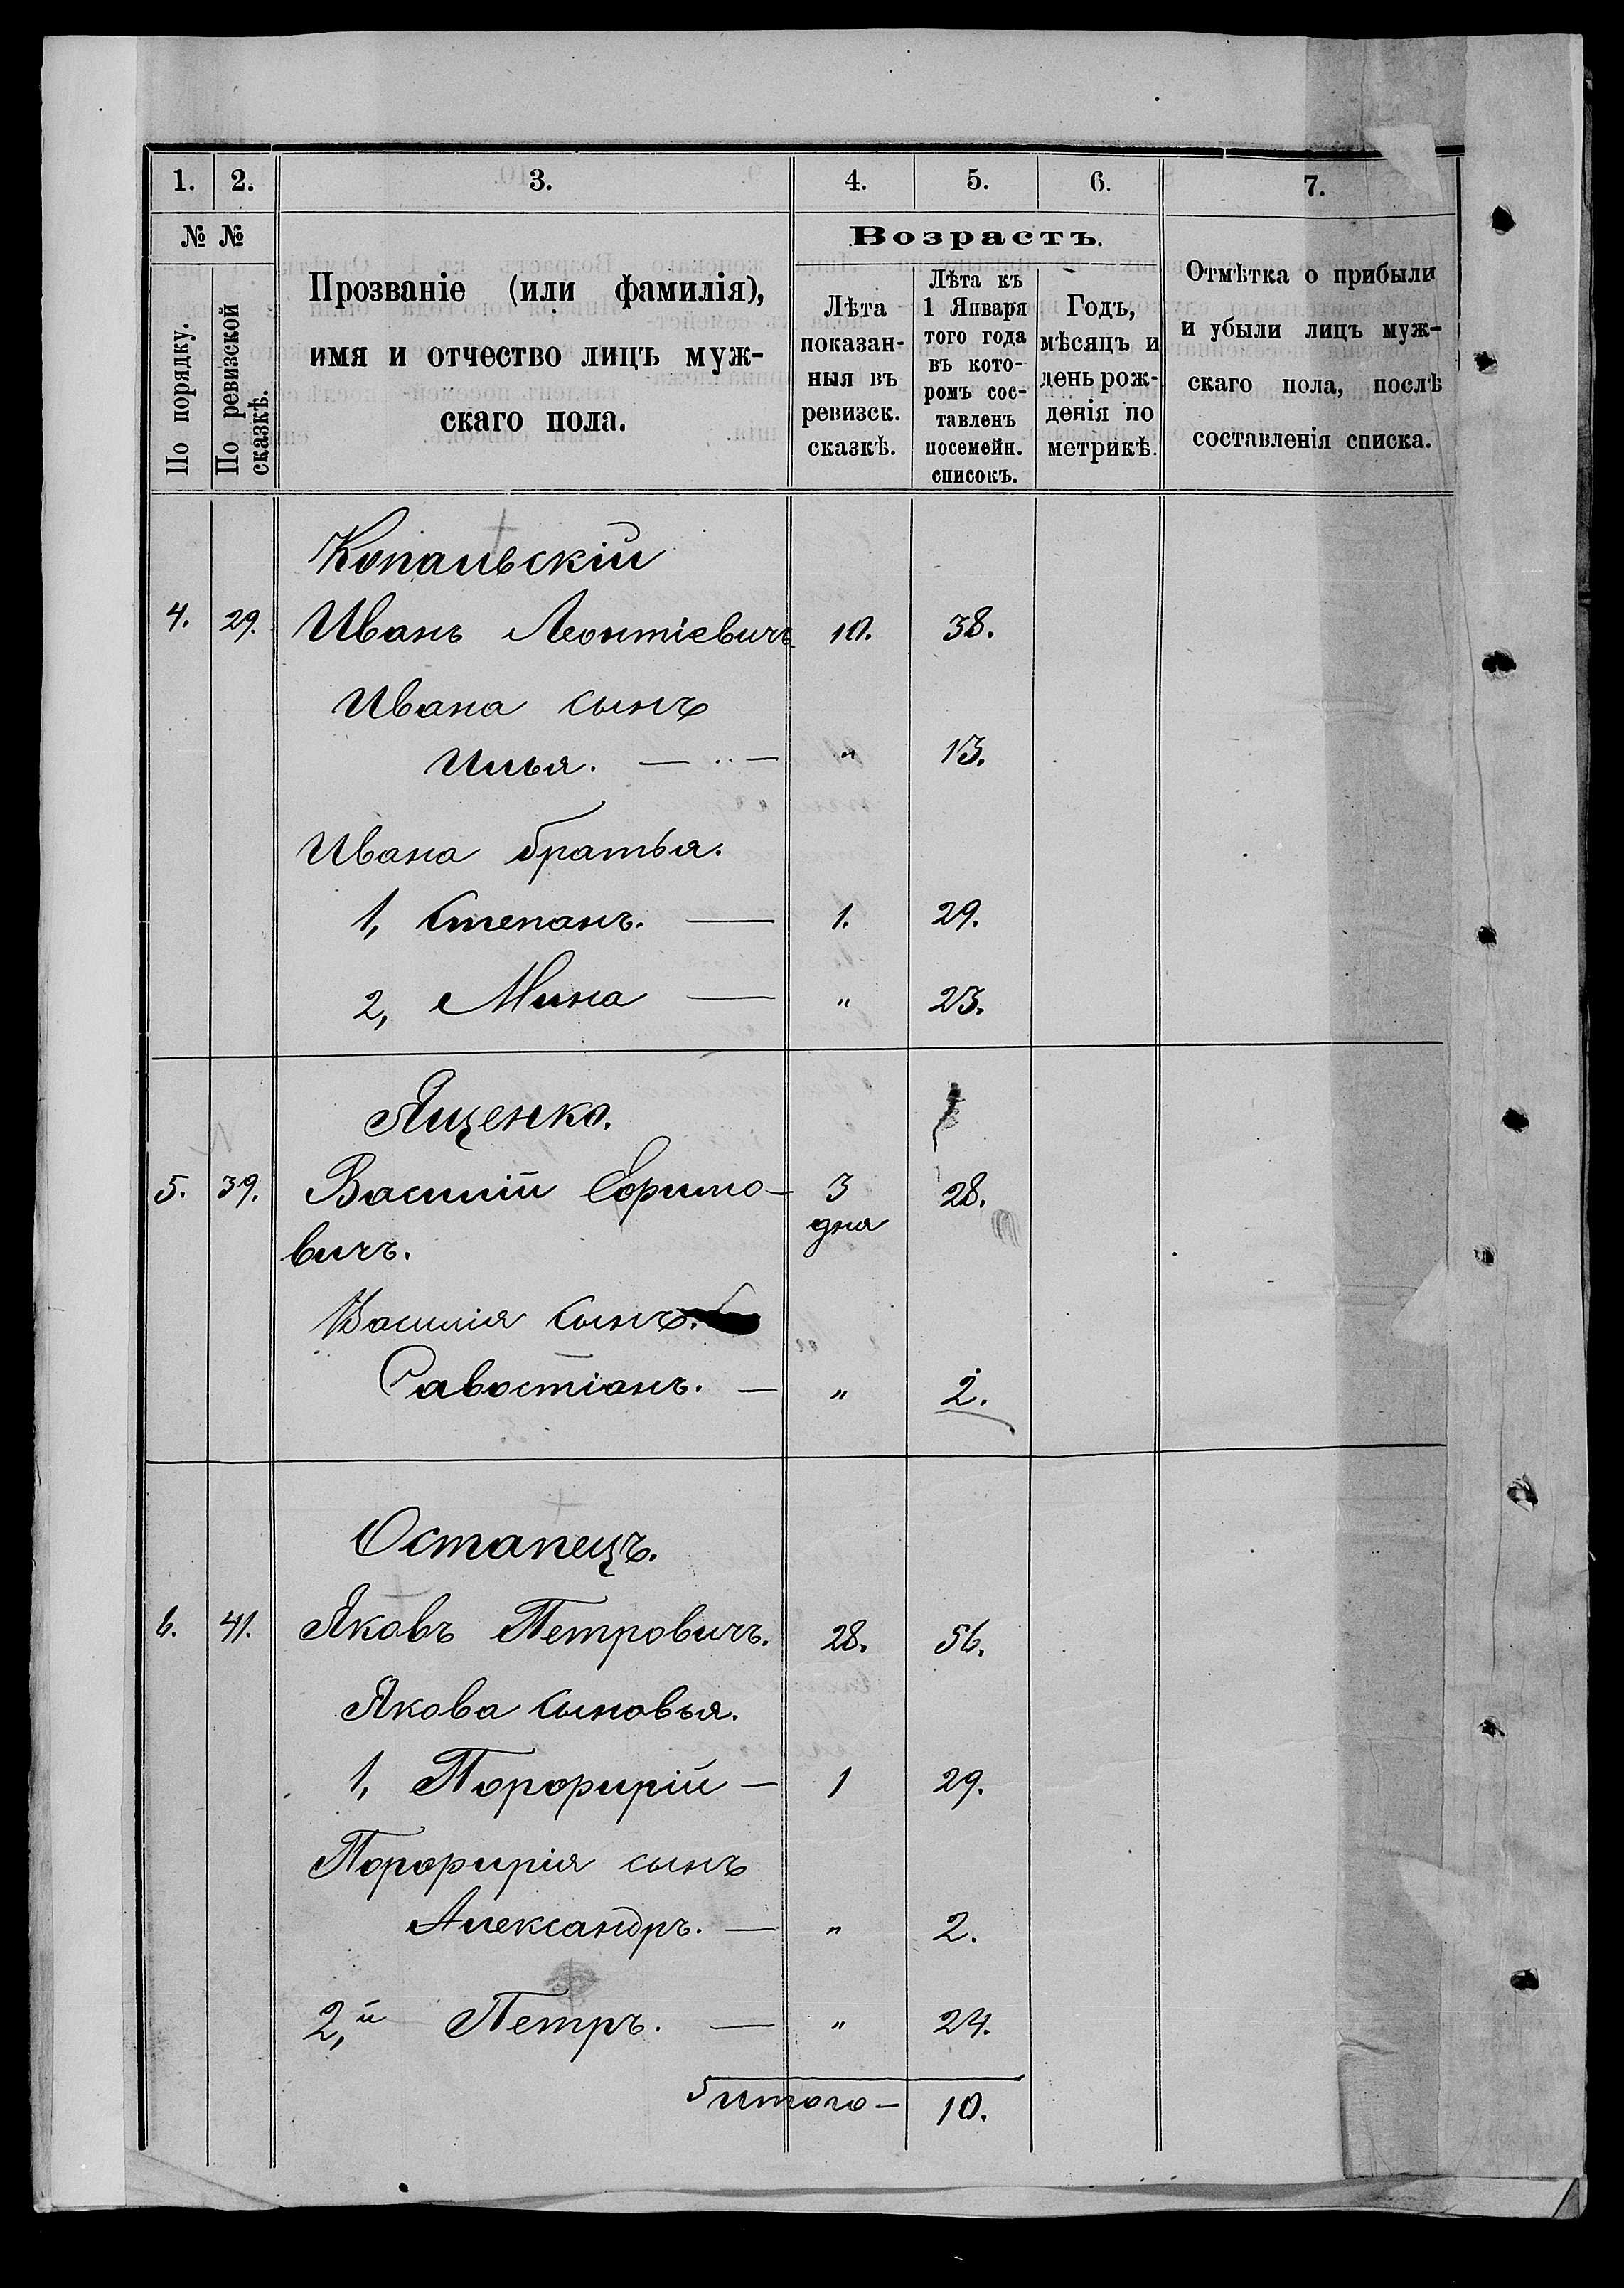 1. 2. 3. 4. 5. 6. 7.
№ №
По порядку.
По ревизской сказкѣ.
Прозваніе (или фамилія),
имя и отчество лицъ муж-
скаго пола.
Возрастъ.
Лѣта
показан-
ныя въ
ревизск.
сказкѣ.
Лѣта къ
1 Января
того года
въ кото-
ромъ сос-
тавленъ
посемейн.
списокъ.
Годъ,
мѣсяцъ и
день рож-
денія по
метрикѣ.
Отмѣтка о прибыли
и убыли лицъ муж-
скаго пола, послѣ
составленія списка.
Копальскій
4. 29. Иванъ Леонтіевичъ 10. 38.
Ивана сынъ
Илья. — „ — " 13.
Ивана братья.
1, Степанъ. — 1. 29.
2, Мина — " 23.
Яценко.
5. 39. Василій Ефимо- 3 дня 28.
вичъ.
Василія сынъ.
Савостіанъ. — " 2.
Остапецъ.
6. 41. Яковъ Петровичъ. 28. 56.
Якова сыновья.
1, Порфирій — 1 29.
Порфирія сынъ
Александръ. — " 2.
2,й Петръ. — " 24.
5 итого — 10.